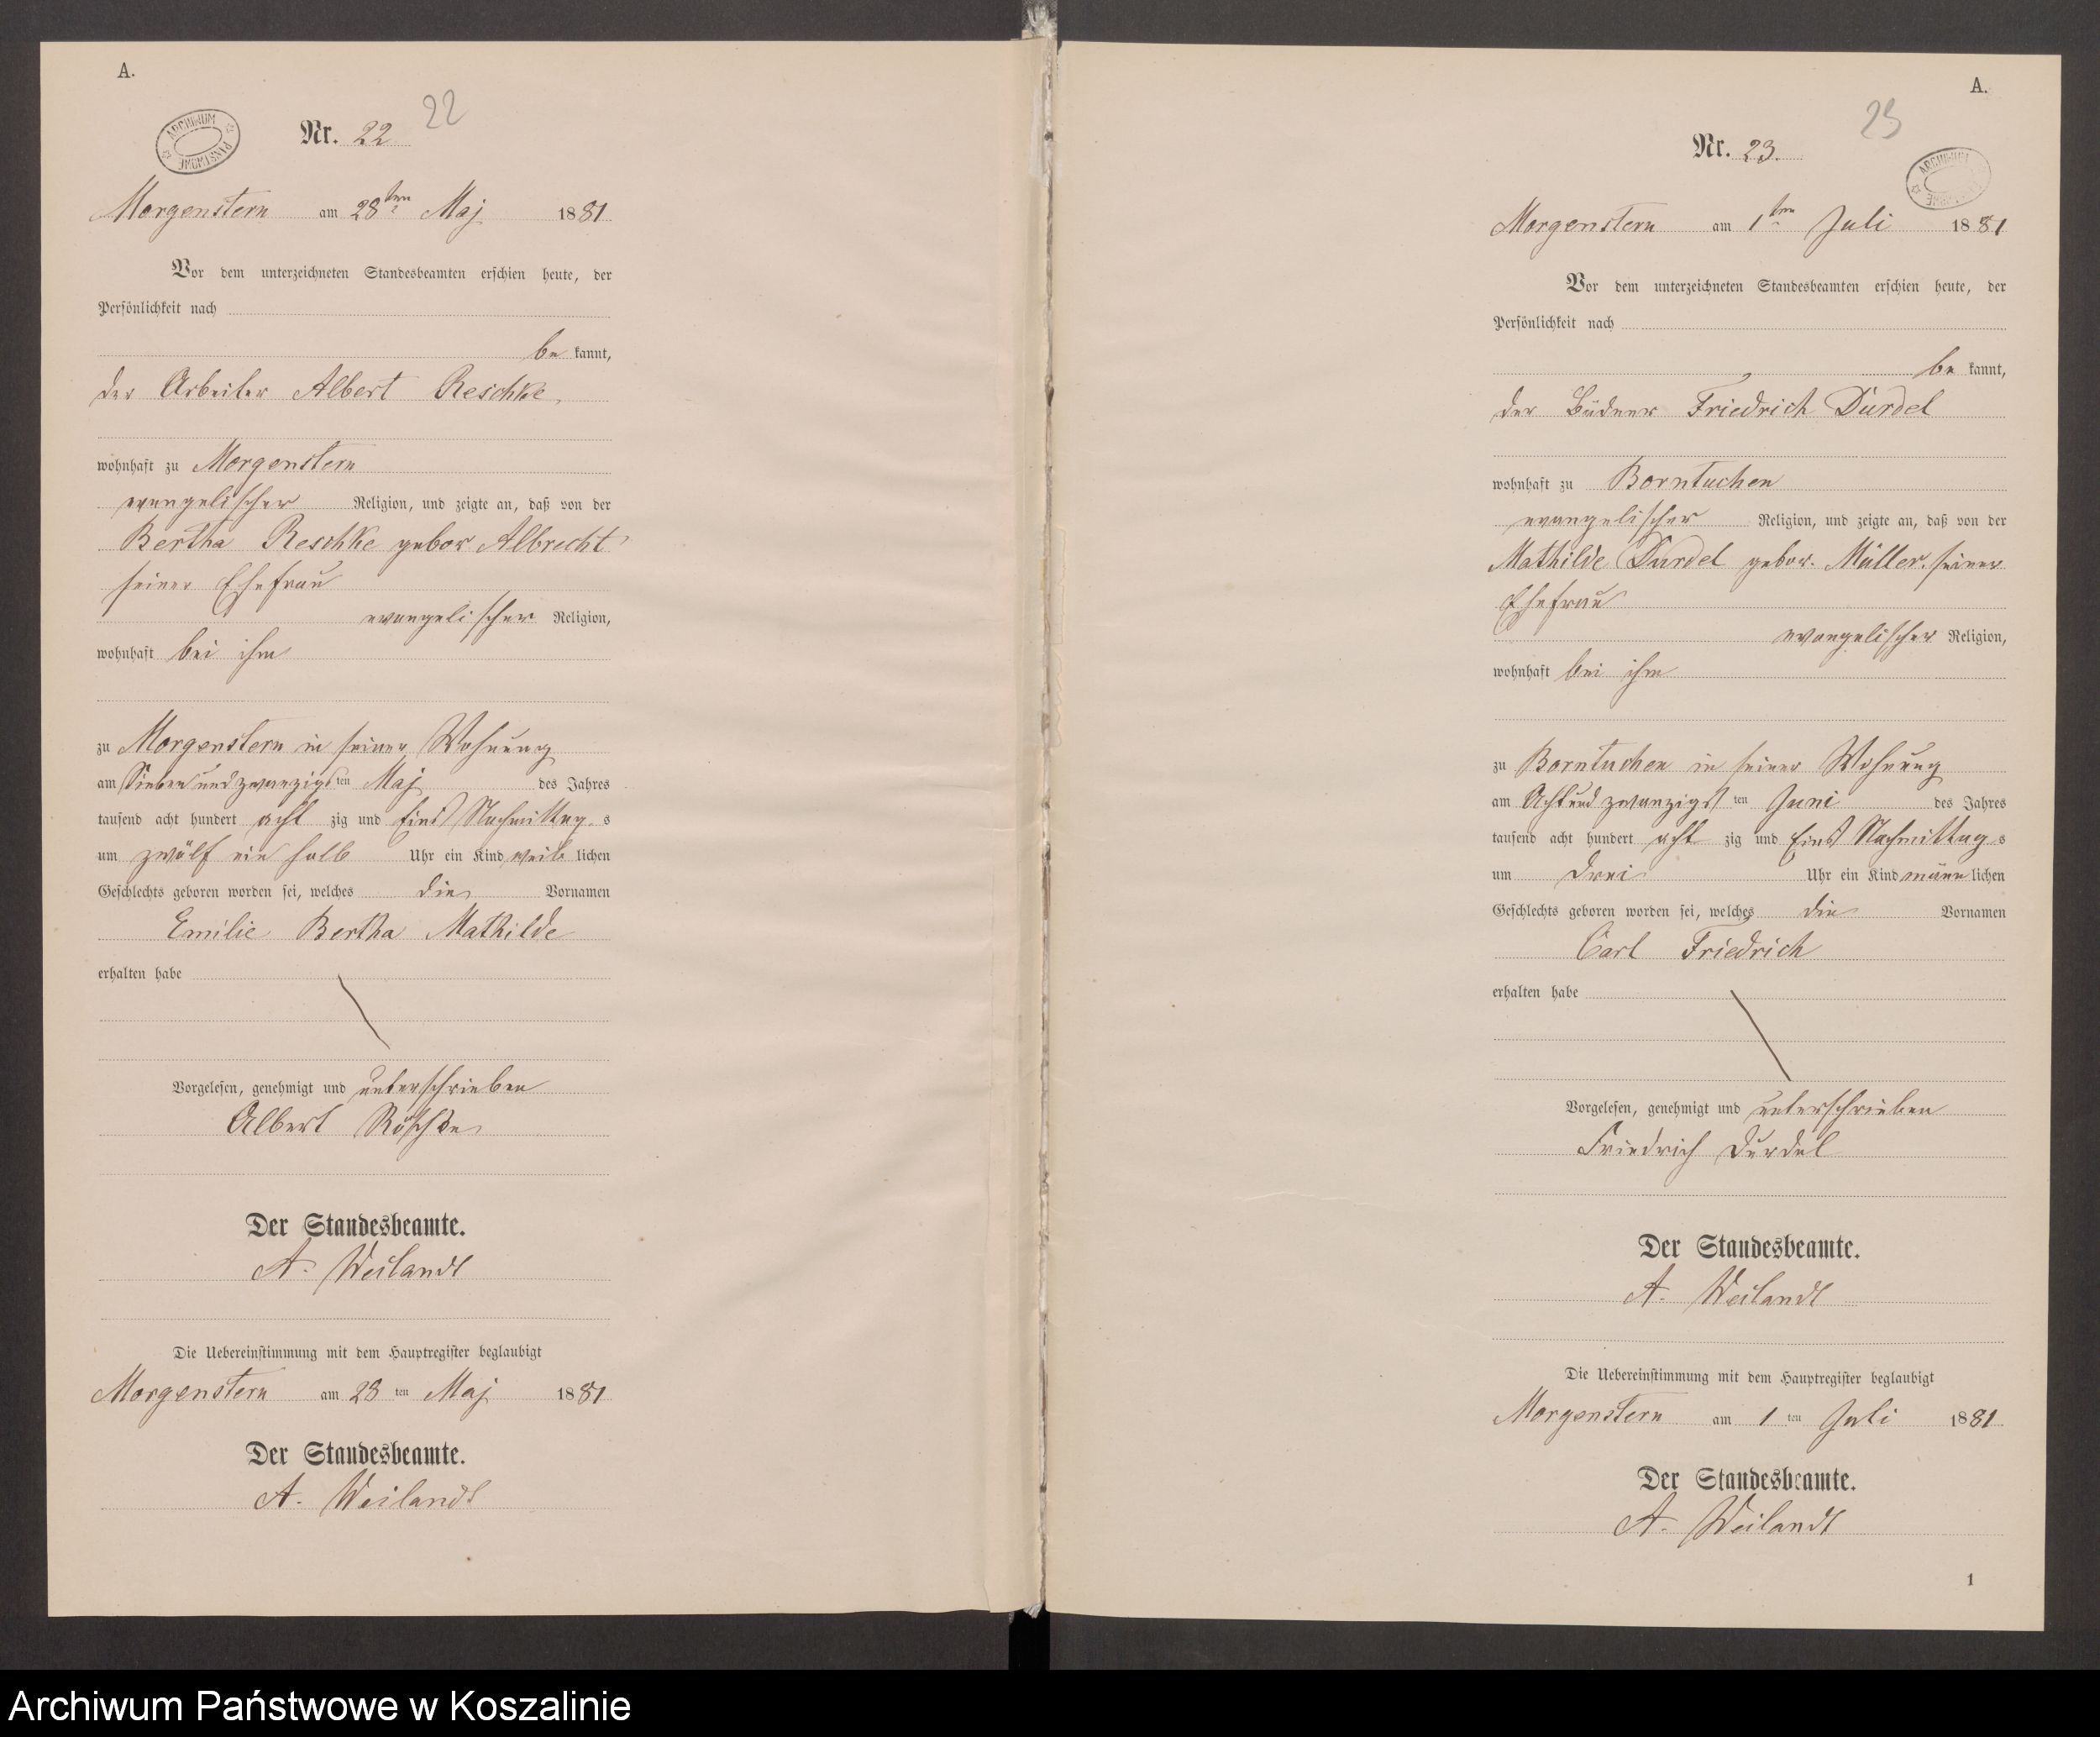 A.
ARCHIWUM PAŃSTWOWE
Nr. 22
22
Morgenstern am 28ten Maj 1881
Vor dem unterzeichneten Standesbeamten erschien heute, der
Persönlichkeit nach
be kannt,
der Arbeiter Albert Reschke
wohnhaft zu Morgenstern
evangelischer Religion, und zeigte an, daß von der
Bertha Reschke gebor Albrecht
seiner Ehefrau
evangelischer Religion,
wohnhaft bei ihm
zu Morgenstern in seiner Wohnung
am Siebenundzwanzigsten Maj des Jahres
tausend acht hundert acht zig und Eins Nachmittags
um zwölf ein halb Uhr ein Kind weib lichen
Geschlechts geboren worden sei, welches die Vornamen
Emilie Bertha Mathilde
erhalten habe
Vorgelesen, genehmigt und unterschrieben
Albert Röschke
Der Standesbeamte.
A. Weilandt
Die Uebereinstimmung mit dem Hauptregister beglaubigt
Morgenstern am 28 ten Maj 1881
Der Standesbeamte.
A. Weilandt
A.
23
Nr. 23.
ARCHIWUM
Morgenstern am 1ten Juli 1881
Vor dem unterzeichneten Standesbeamten erschien heute, der
Persönlichkeit nach
be kannt,
der Büdner Friedrich Durdel
wohnhaft zu Borntuchen
evangelischer Religion, und zeigte an, daß von der
Mathilde Durdel gebor. Müller, seiner
Ehefrau
evangelischer Religion,
wohnhaft bei ihm
zu Borntuchen in seiner Wohnung
am Achtundzwanzigst ten Juni des Jahres
tausend acht hundert acht zig und Eins Nachmittags
um drei Uhr ein Kind männ lichen
Geschlechts geboren worden sei, welches die Vornamen
Carl Friedrich
erhalten habe
Vorgelesen, genehmigt und unterschrieben
Friedrich Durdel
Der Standesbeamte.
A. Weilandt
Die Uebereinstimmung mit dem Hauptregister beglaubigt
Morgenstern am 1 ten Juli 1881
Der Standesbeamte.
A. Weilandt
1
Archiwum Państwowe w Koszalinie